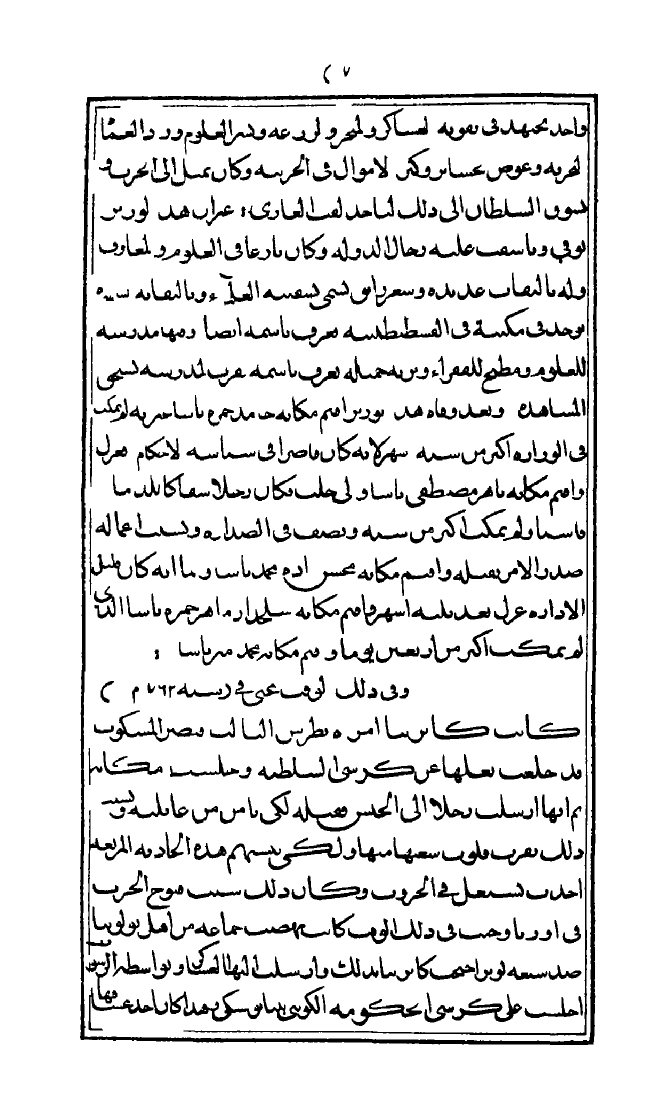 ( ٧
واحد يجتهد فى تقوية العساكر والبحر والزرعه ونشر العلوم ورد العصا
الحربه وعوض عساير وكثر الاموال فى الخزينه وكان يميل الى الحرب و
يسوق السلطان الى ذلك ليأخذ لقب الغازى؛ غير ان هذا لوزير
توفى وتأسف عليه رجال الدوله وكان بارعا فى العلوم والمعارف
وله تاليفات عديده وشعر رايق تسمى بسفينة العلماء وتاليفاته
توجد فى مكتبة فى القسطنطينيه تعرف باسمه ايضا ومنها مدرسه
للعلوم ومطبخ للفقراء وتربه جميله تعرف باسمه بقرب المدرسه تسمى
المشاهده وبعد وفاة هذا لوزير اقيم مكانه حامد حمزه باشا غير انه لم يمكث
فى الوزاره اكثر من سنه شهر لانه كان قاصرا فى سياسة الاحكام فعزل
واقيم مكانه باهر مصطفى باشا والى حلب فكان رجلا سفاكا للدما
قاسيا ولم يمكث اكثر من سنه ونصف فى الصداره وبسبب اعماله
صدر الامر بقتله واقيم مكانه محسن زاده محمد باشا وبما انه كان قليل
الاداره عزل بعد ثلثة اشهر فاقيم مكانه سلحدار ماهر حمزه باشا الذى
لم يمكث اكثر من اربعين يوما واقيم مكانه محمد امين باشا ؛
وفى ذلك الوقت عنى فى (سنه ٧٦٢ م )
كانت كاترينا امرءة بطرس الثالث قيصر المسكوب
قد خلعت بعلها عن كرسى السلطنه وجلست مكانه
ثم انها ارسلت رجلا الى الحبس فقتله لكى تأمن من غايلته وبسبب
ذلك نفرت قلوب شعبها منها ولكى ينسيهم هذه الحادثه المريعه
اخذت تشتغل فى الحروب وكان ذلك سبب فتوح الحرب
فى اوربا وحيث فى ذلك الوقت كانت نهضت جماعه من اهل بولونيا
ضد شعبه لوبر اخبرت كاترينا بذلك وارسلت اليها العساكر وبواسطة الرشو
اجلست على كرسى الحكومه الكونتى بونياتوسكى هذا كان احد عشاقها